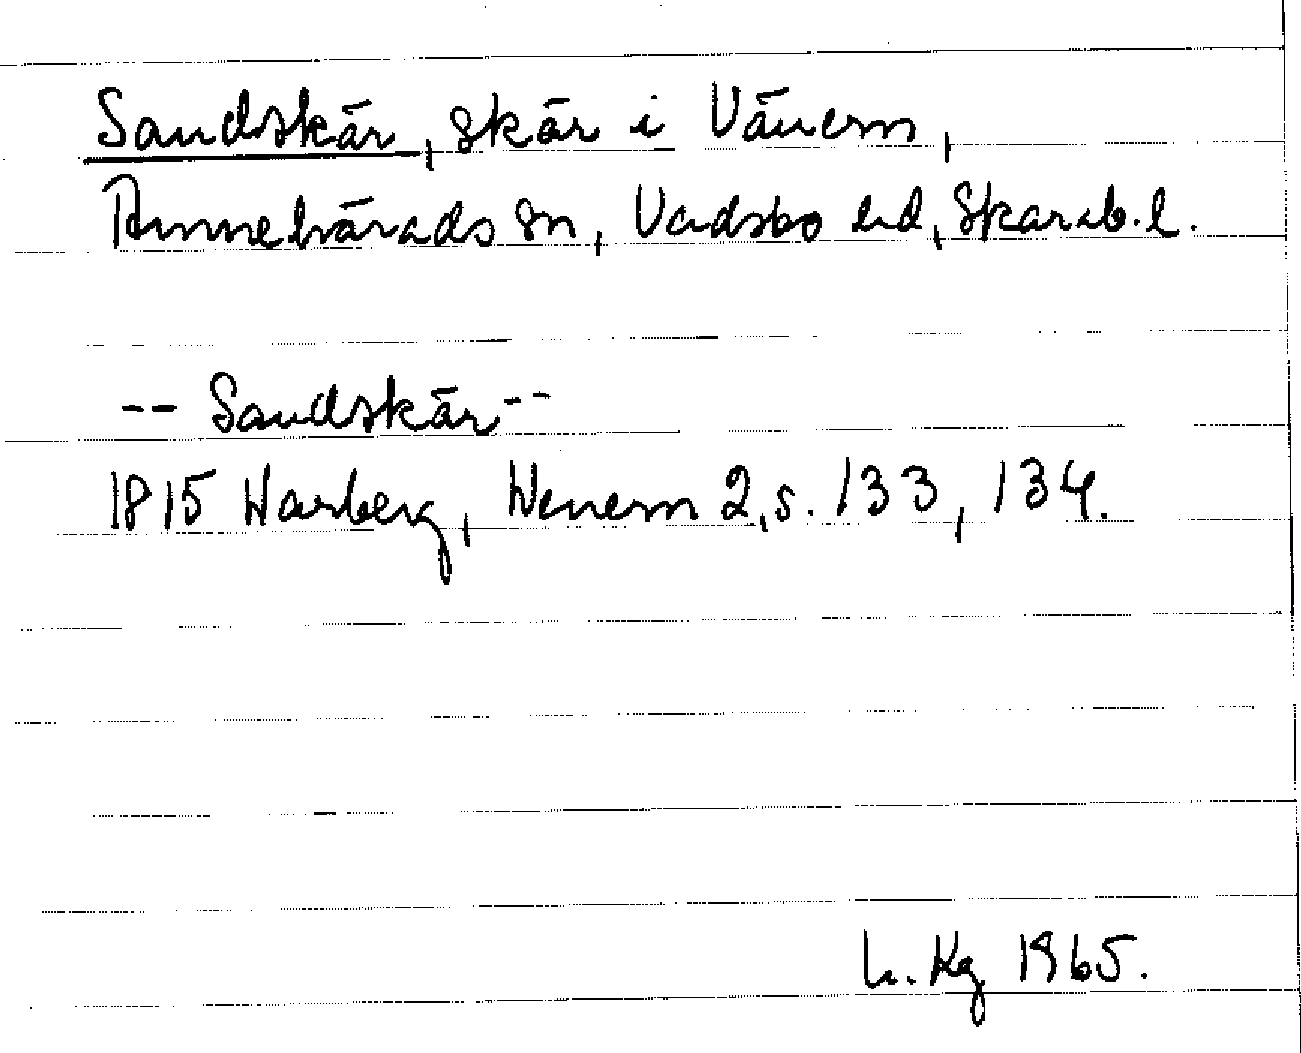 Sandskär, skär i Vänern,
Amnehärads sn, Vadsbo hd, Skarab. l.
-- Sandskär --
1815 Warberg, Wenern 2, s. 133, 134.
L. Kg 1965.